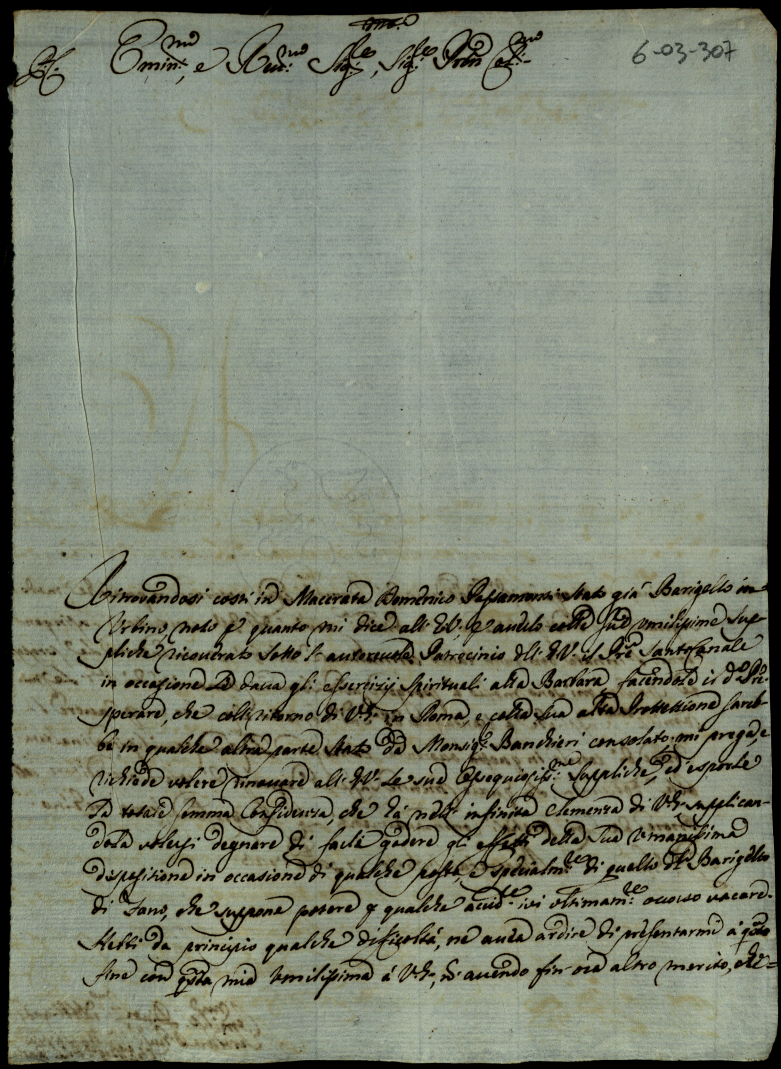 6-03-307
Emin.mo, e Reu.mo Sig.re, Sig.re Pron Col.mo
Ritrovandosi costì in Macerata Domenico Passamonti stato già Barigello in
Urbino, noto p quanto mi dice all' E.V. p auerlo colle sue umilissime sup-
pliche ricourato sotto l' autoreuole Patrocinio dell' E.V. il Pre Santocanale
in occasione che daua gli essercizij spirituali alla Barbara, facendole il do Pre
sperare, che col ritorno di V.E. in Roma, e colla sua alta Protettione sareb-
be in qualche altra parte stato da Monsig.r Banchieri consolato, mi prega, e
richiede volere rinouare all' E.V. le sue ossequiosiss.me suppliche, ed esporle
la totale somma Confidenza, che hà nell' infinita Clemenza di V.E. supplican-
dola volersi degnare di farle godere gli effetti della sua umanissima
dispositione in occasione di qualche posto, e specialm.te di quello del Barigello
di Fano, che suppone potere p qualche accid.te iui ultimam.te occorso vacare.
Hebbi da principio qualche dificoltà, ne aueua ardire di presentarmi à questo
fine con questa mia umilissima à V.E., nō auendo fin'ora altro merito, che